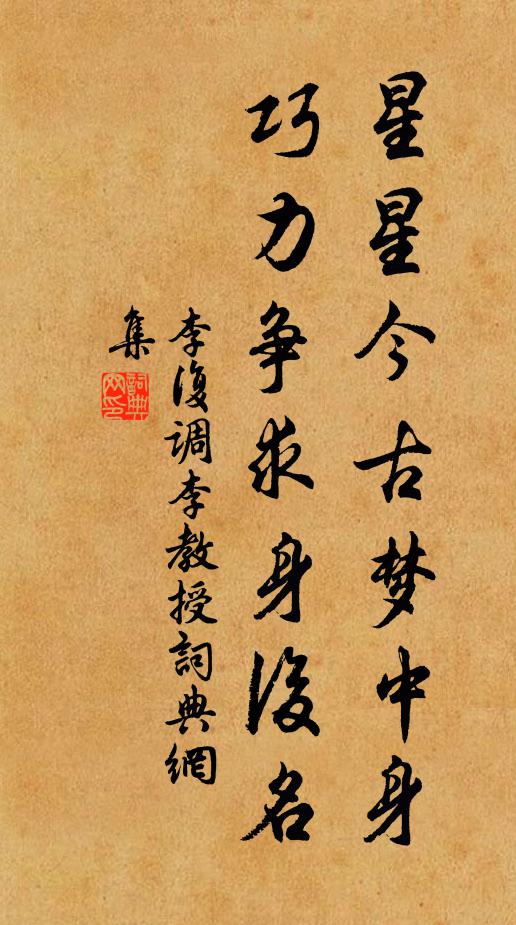 星星今古梦中身
巧力争求身後名
李復调李教授詞典網
集
詞典
网印